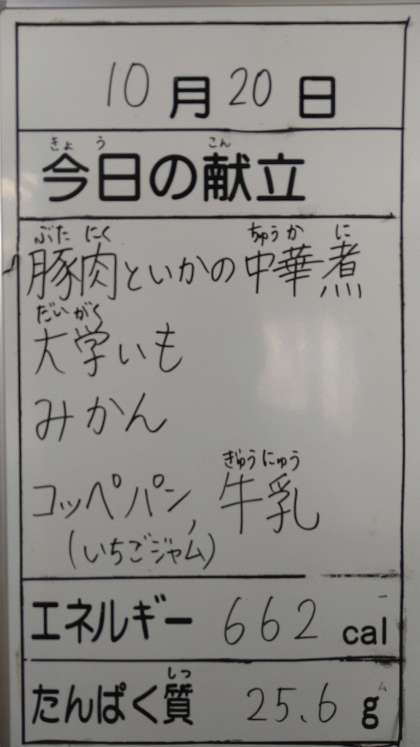 10月20日
きょう こん
今日の献立
ぶた にく ちゅう か に
豚肉といかの中華煮
だい がく
大学いも
みかん
ぎゅう にゅう
コッペパン, 牛乳
(いちごジャム)
エネルギー 662 cal
しつ
たんぱく質 25.6 g